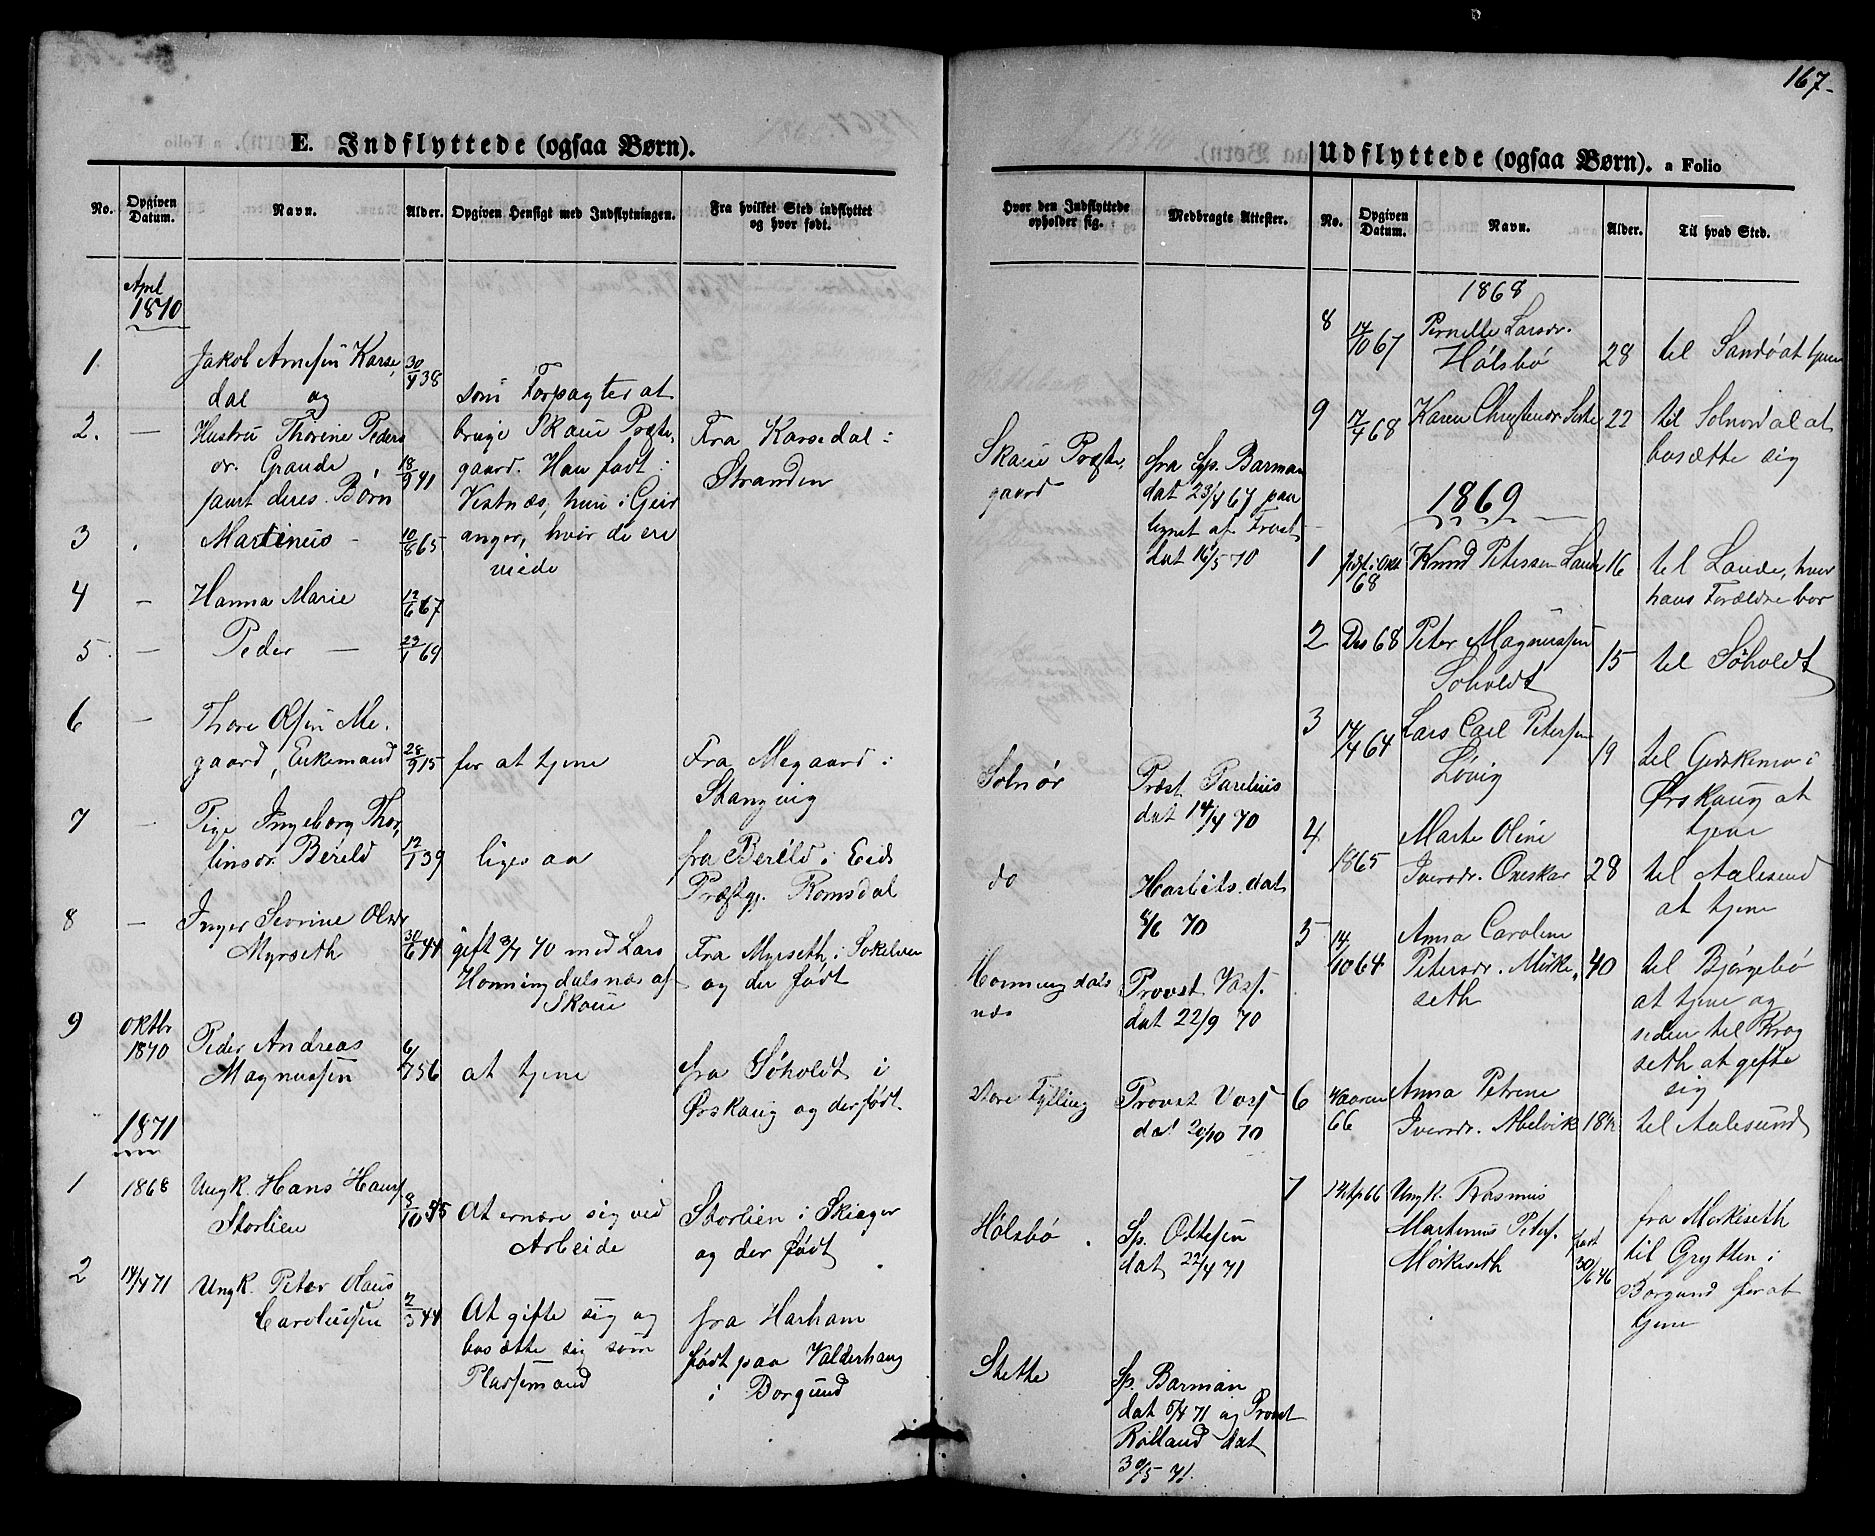 167.
E. Indflyttede (ogsaa Børn).
No.
Opgiven Datum.
Navn.
Alder.
Opgiven Hensigt med Indflytningen.
Fra hvilket Sted indflyttet
og hvor født.
April
1870
1
Jakob Arnesen Karse,
dal og
30/4 38
som Forpagter at
2. —
Hustru Thorine Peders
dr. Grande
samt deres Børn
18/9 41
bruge Skaue Præste,
gaard. Han født i
Vestnæs, hun i Geir
anger, hvor de ere
viede
Fra Karsedal i
Stranden
3
Martinus —
10/8 65
4 —
Hanna Marie
12/6 67
5. —
Peder —
29/1 69
6 —
Thore Olsen Me,
gaard, Enkemand
28/9 15
for at tjene
Fra Megaard i
Stangvig
7 —
Pige Ingeborg Thor,
linsdr. Bereld
12/1 39
ligesaa
fra Bereld i Eids
Præstgj. Romsdal
8 —
Inger Sevrine Olsdr
Myrseth
30/6 44
gift 3/7 70 med Lars
Honningdalsnæs af
Skaue
Fra Myrseth i Søkelven
og der født
9
Oktbr
1870
Peder Andreas
Magnussen
6/7 56
at tjene
fra Søholdt i
Ørskaug og der født.
1871
1
1868
Ungk. Hans Hans
Storlien
8/10 45
At ernære sig ved
Arbeide
Storlien i Skiager
og der født
2
14/4 71
Ungk. Peter Olaus
Carolussen
2/3 44
At gifte sig og
bosætte sig som
Pladsemand
fra Harham
født paa Valderhaug
i Borgund
Hvor den Indflyttede
opholder sig.
Medbragte Attester.
Skaue Præste,
gaard
fra Sp. Barman
dat 23/4 67 paa
tegnet af Provst
dat 16/5 70
Solnør
Præst Parelius
dat 14/4 70
do
Harbits. dat
8/6 70
Honningdals
næs
Provst Voss.
dat 22/9 70
Store Fylling
Provst Voss
dat 20/10 70
Hølsbø
Sp. Ottesen
dat 22/4 71
Stette
Sp. Barman
dat 5/4 71 og Provst
Rolland dat
30/5 71.
Udflyttede (ogsaa Børn). a Folio
No.
Opgiven
Datum.
Navn.
Alder.
Til hvad Sted.
1868
8
14/10 67
Pernille Larsdr.
Hølsbø
28
til Sandø at tjene
9
17/4 68
Karen Christensdr Stette
22
til Solnørdal at
bosætte sig
1869
1
68
Knud Petersen Lande
16
til Lande, hvor
hans Forældre bor
2
Des 68
Peter Magnussen
Søholdt
15
til Søholdt
3
14/4 64
Lars Carl Petersen
Løvig
19
til Giskemo i
Ørskaug at
tjene
4
1865
Marte Oline
Iversdr. Oneskar
28
til Aalesund
at tjene
5
14/10 64
Anna Caroline
Petersdr. Mørke,
seth
40
til Bjørgebø
at tjene og
siden til Krog
seth at gifte
sig
6
Vaaren
66
Anna Petrine
Iversdr. Abelvik
18½
til Aalesund
7
14 Ap 66
Ungk. Rasmus
Martinus Peters.
Mørkeseth
født
30/6 46
fra Mørkeseth
til Grytten i
Borgund for at
tjene